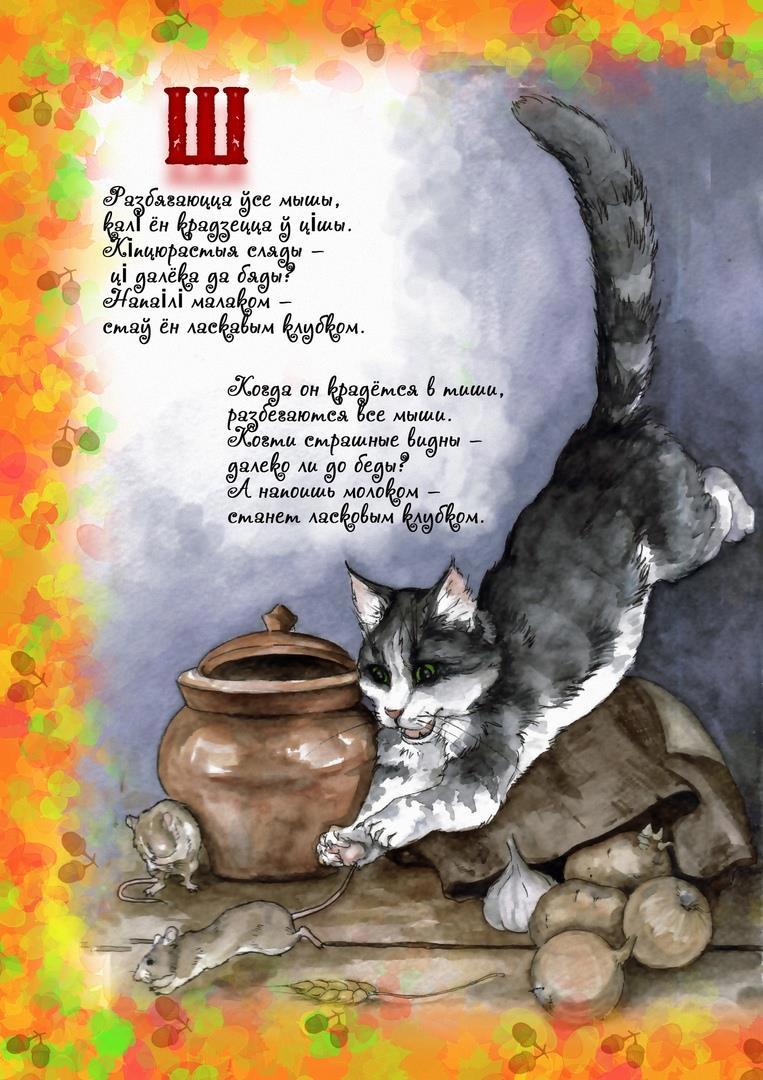 Ш
Разбягаюцца ўсе мышы,
калі ён крадзецца ў цішы.
Кіпцюрастыя сляды –
ці далёка да бяды?
Напаілі малаком –
стаў ён ласкавым клубком.
Когда он крадётся в тиши,
разбегаются все мыши.
Когти страшные видны –
далеко ли до беды?
А напоишь молоком –
станет ласковым клубком.